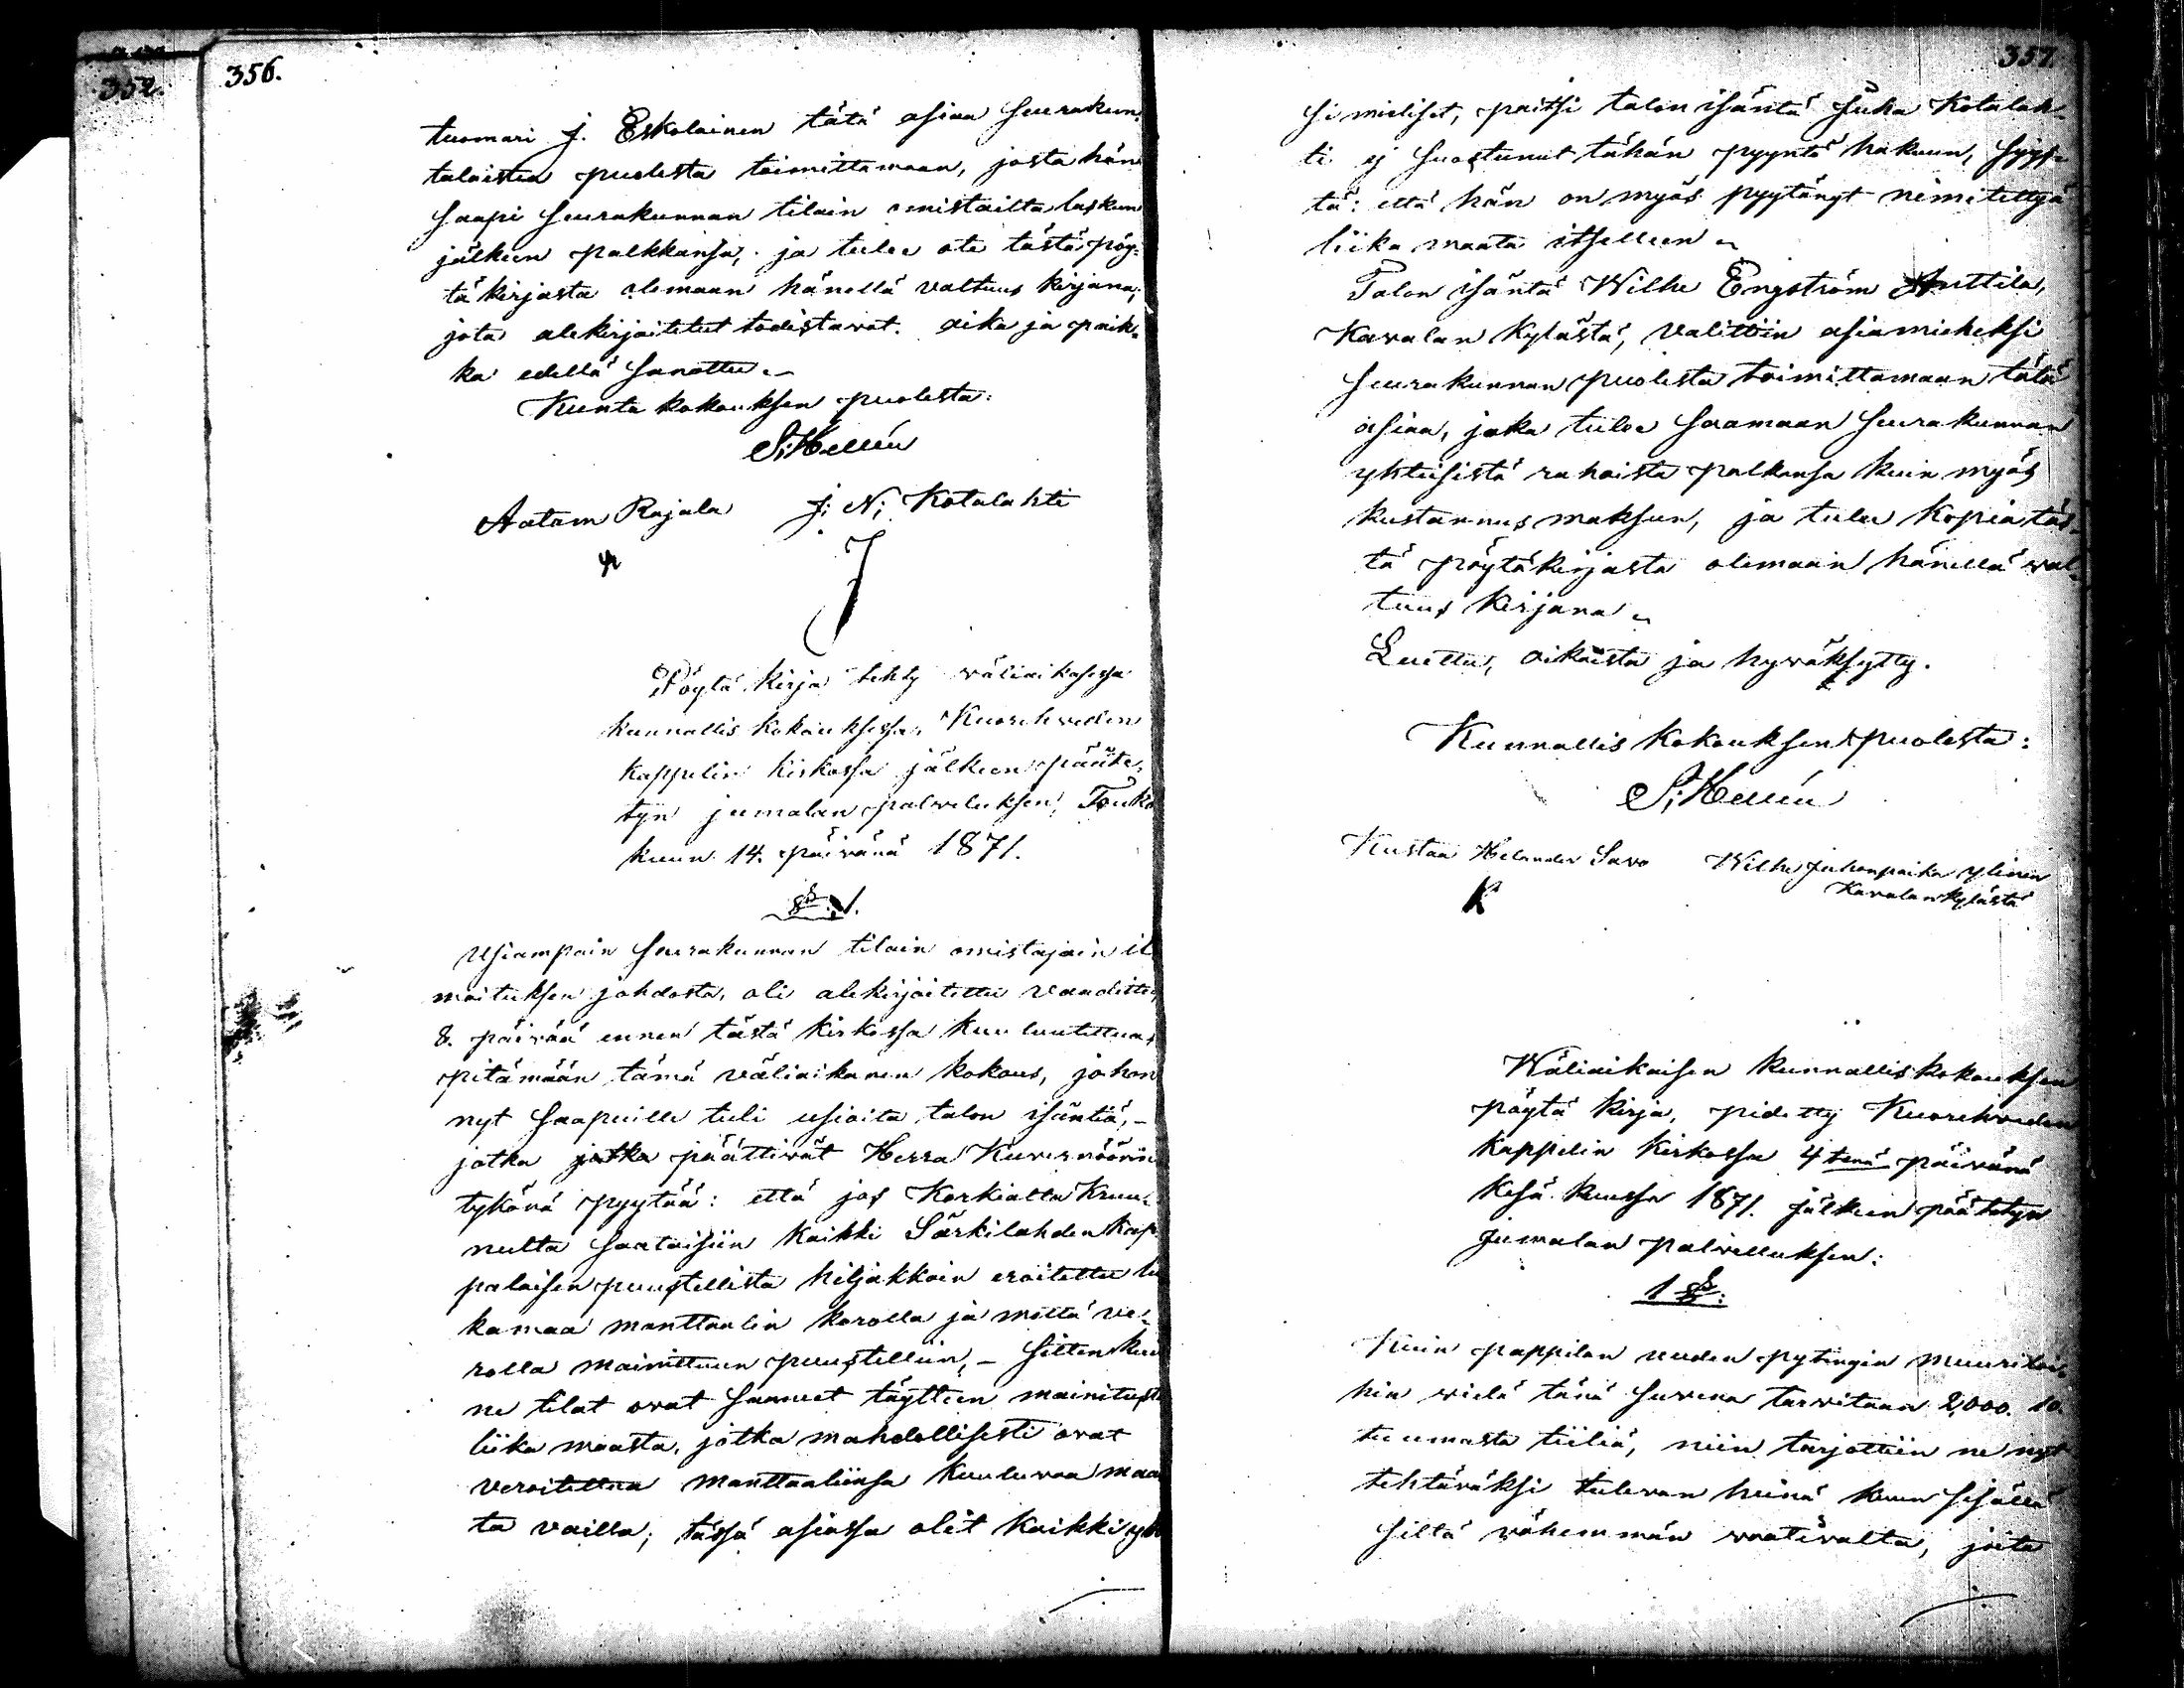 352.
356.
tuomari J. Eskolainen tätä asiaa seurakun-
talaisten puolesta toimittamaan, josta hän
saapi seurakunnan tilain omistailta laskun
jälkeen palkkansa, ja tulee ote tästä pöy-
täkirjasta olemaan hänellä valtuus kirjana,
jota alekirjoitetut todistavat. aika ja paik-
ka edellä sanottu.
Kunta kokouksen puolesta:
S; Hellén
Aatam Rajala J; N; Kotalahti
Pöytä kirja tehty väliaikasessa
kunnallis kokouksessa, Kuoreh veden
kappelin kirkossa jälkeen pääte-
tyn jumalan palveluksen, Touko
kuun 14. päivänä 1871.
§. 1.
Usiampain seurakunnan tilain omistajain il
moituksen johdosta, oli alekirjoitettu vaadittu,
8. päivää ennen tästä kirkossa kuuluutettuas
pitämään tämä väliaikanen kokous, johon
nyt saapuille tuli usioita talon isäntiä,-
jotka jotka päättivät Herra Kuvernöörin
tykönä pyytää: että jos Korkialta Kruu-
nulta saataisiin kaikki Särkilahden kap
palaisen puustellista hiljakkoin eroitettu lii
kamaa manttaalin korolla ja mellä ve-
rolla mainittuun puustelliin,- sitten kuin
ne tilat ovat saaneet täytteen mainitusta
liika maasta, jotka mahdollisesti ovat
veroitettua manttaaliinsa kuuluvaa maa
ta vailla; tässä asiassa olit kaikki yk
357.
simieliset, paitsi talon isäntä Juha Kotalah-
ti ej suostunut tähän pyyntö hakuun, syys-
tä: että hän on myös pyytänyt nimitettyä
liika maata itselleen.
Talon isäntä Wilhe Engström Anttila,
Kavalan kylästä, valittiin asiamieheksi
seurakunnan puolesta toimittamaan tätä
asiaa, joka tulee saamaan seurakunnan
yhteisistä rahoista palkansa kuin myös
kustannus maksun, ja tulee kopia täs-
tä pöytäkirjasta olemaan hänellä val-
tuus kirjana.
Luettu, oikaista ja hyväksytty.
Kunnallis kokouksen puolesta:
S; Hellén
Kustaa Helander Savo Wilhe Juhanpoika Ylinen
K Kavalan kylästä
Wäliaikaisen kunnallis kokouksen
pöytä kirja, pidetty Kuorehveden
kappelin kirkossa 4 tenä päivänä
kesä kuussa 1871. jälkeen päätetyn
Jumalan palvelluksen:
1 §:
Kuin pappilan uuden pytingin muuriloi-
hin vielä tänä suvena tarvitaan 2,000. 10.
tuumasta tiiliä, niin tarjottiin ne nyt
tehtäväksi tulevan heinä kuun sisällä
siltä vähemmän vaativalta, joita